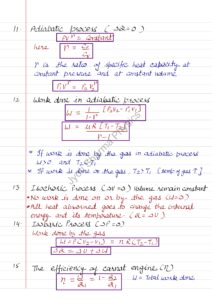 11. Adiabatic process (ΔQ=0)
PVʳ = Constant
here r = Cp/Cv
r is the ratio of specific heat capacity at
constant pressure and at constant volume
P₁V₁ʳ = P₂V₂ʳ
12. Work done in adiabatic process
W = 1/1-r [P₂V₂-P₁V₁]
W = nR(T₁-T₂)/r-1
* If work is done by the gas in adiabatic process
W>0 and T₂<T₁
* If work is done on the gas, T₂>T₁ [temp of gas ↑]
13 Isochoric Process (ΔV=0) Volume remain constant
• No work is done on or by the gas (W=0)
• All heat absorbed goes to change the internal
energy and its temperature (Q=ΔU)
14 Isobaric Process (ΔP=0)
Work done by the gas
W=P(V₂-V₁) = nR(T₂-T₁)
ΔQ = ΔU + ΔW
15 The efficiency of carnot engine (η)
η = W/Q₁ = 1-Q₂/Q₁
W = Total work done